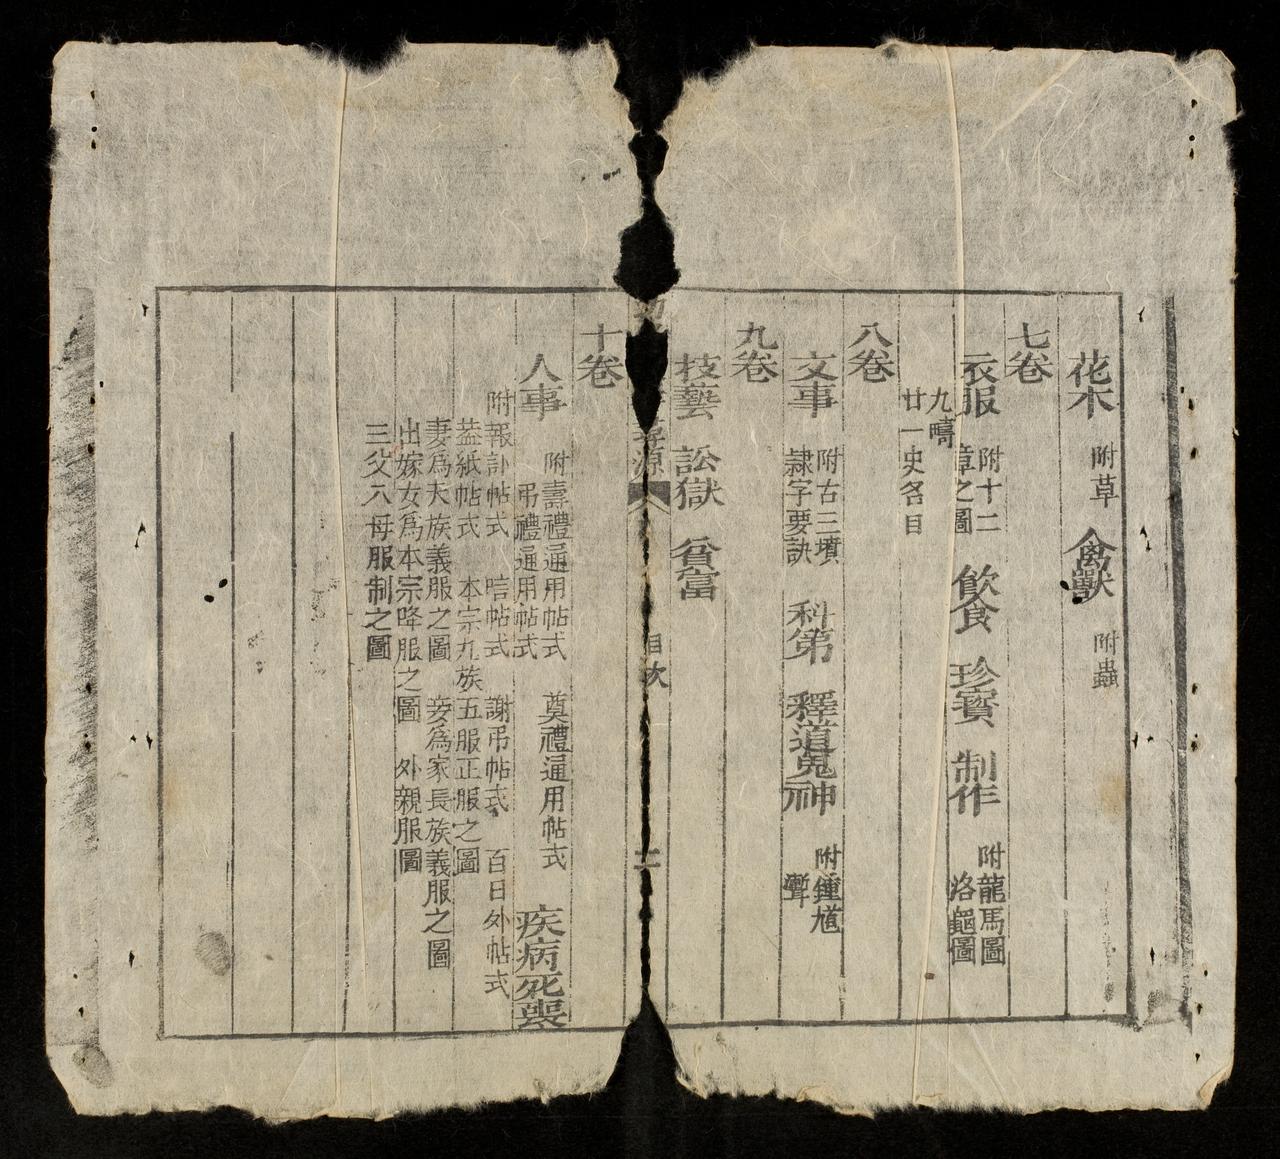 花木 附草 禽獸 附蟲
七卷
衣服 附十二章之圖 飲食 珍寶 制作 附龍馬圖 洛龜圖
九疇 廿一史名目
八卷
文事 附古三墳 隷字要訣 科第 釋道鬼神 附鍾馗
九卷
技藝 訟獄 貧富
尋源 目次 二
十卷
人事 附壽禮通用帖式 弔禮通用帖式 奠禮通用帖式 疾病死喪
附報訃帖式 唁帖式 謝弔帖式 百日外帖式
葢紙帖式 本宗九族五服正服之圖
妻爲夫族義服之圖 妾爲家長族義服之圖
出嫁女爲本宗降服之圖 外親服圖
三父八母服制之圖